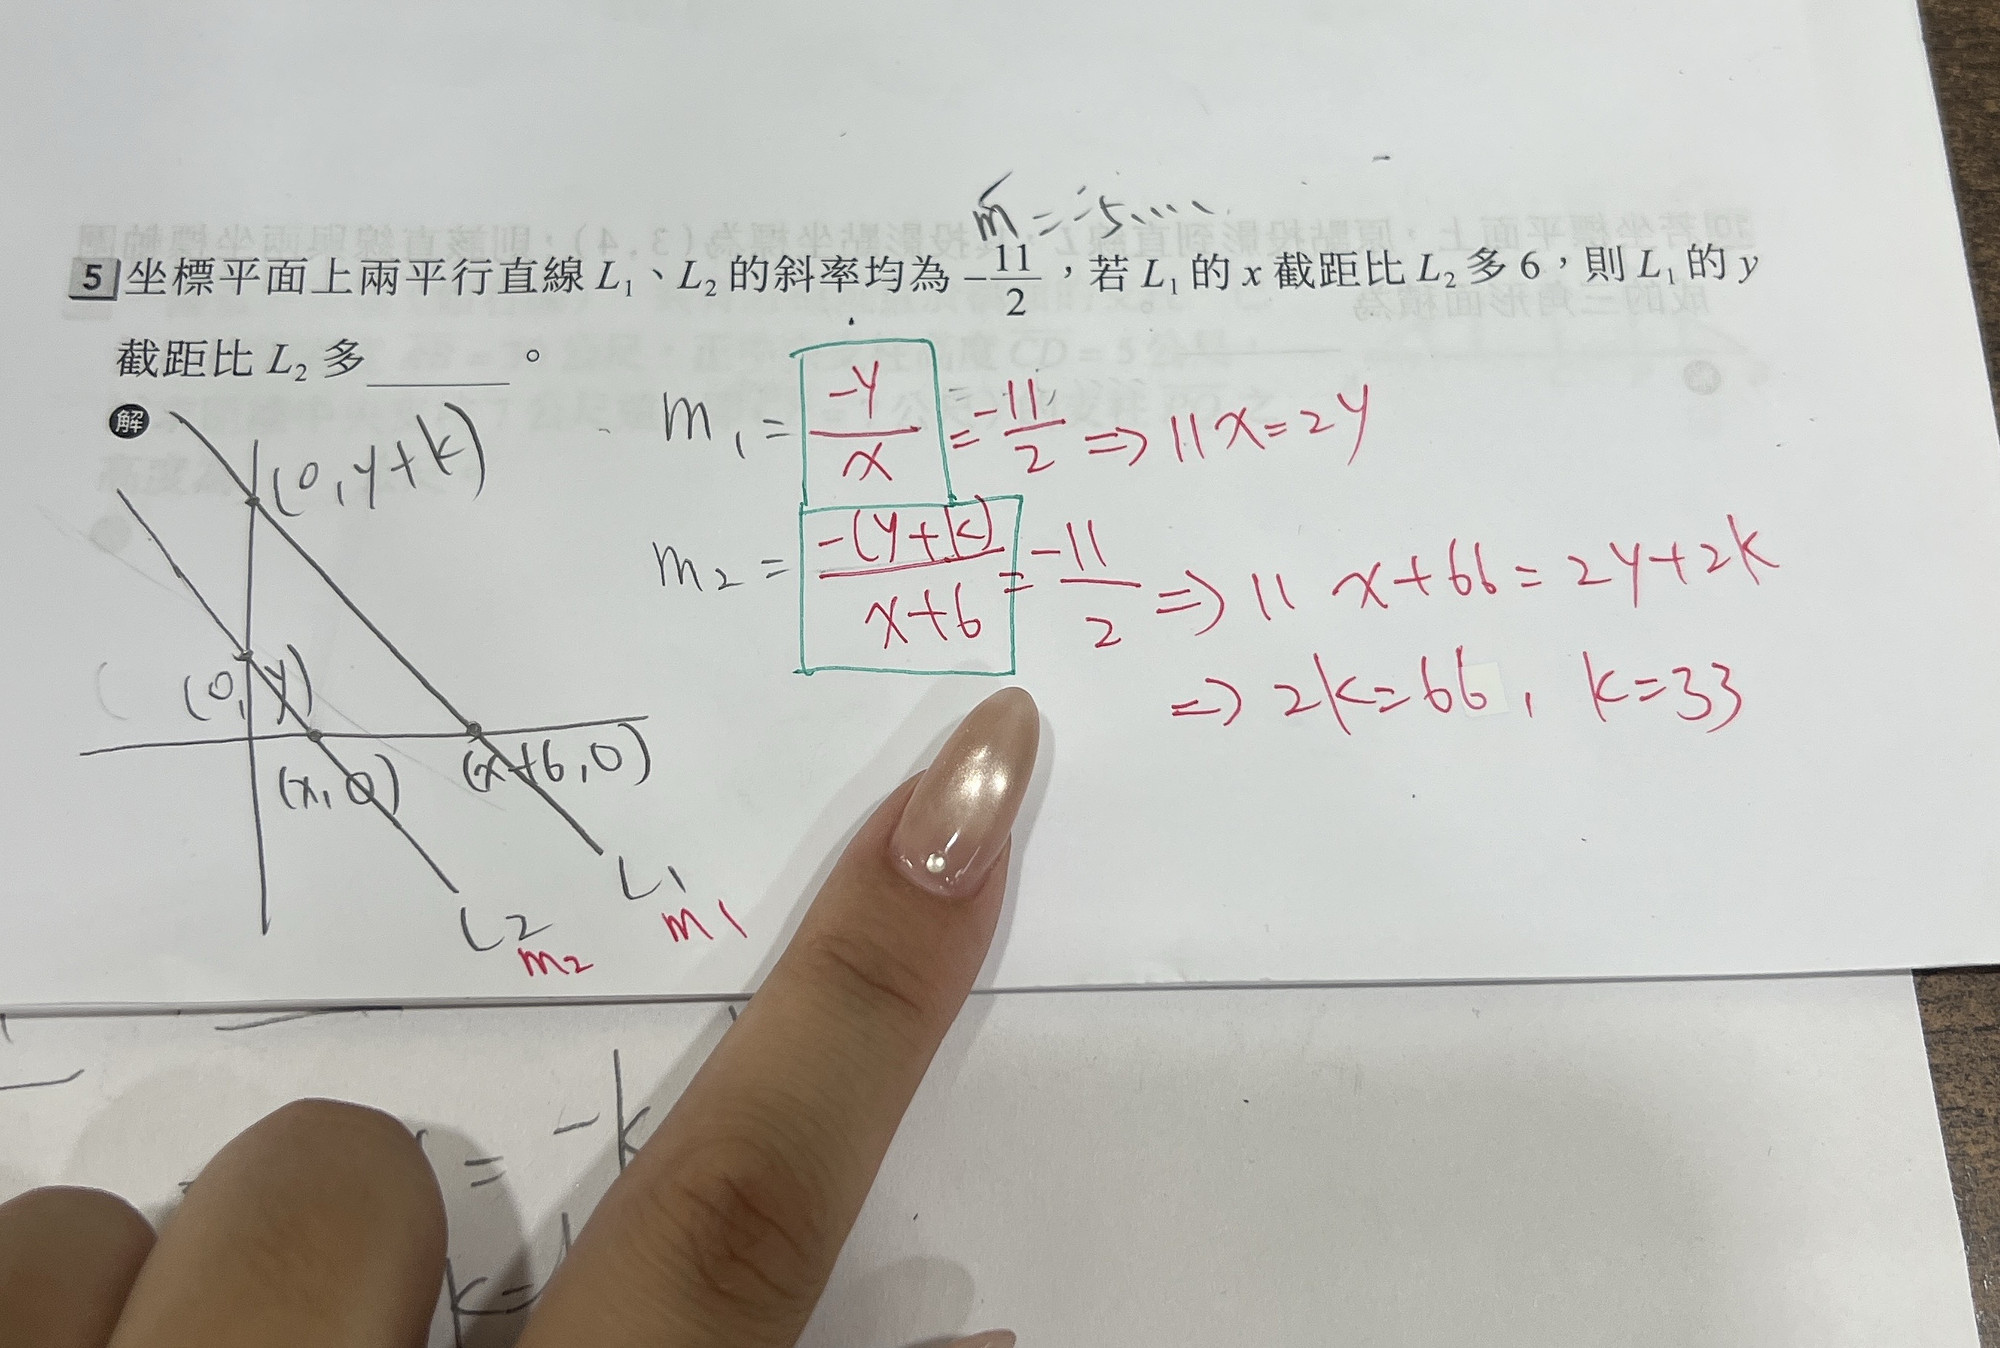 m = -5....
5 坐標平面上兩平行直線 L₁、L₂ 的斜率均為 -11/2，若 L₁ 的 x 截距比 L₂ 多 6，則 L₁ 的 y
截距比 L₂ 多______。
解
(0, y+k)
(0, y)
(x, 0)
(x+6, 0)
L1
m1
L2
m2
m₁ = -y/x = -11/2 ⇒ 11x = 2y
m₂ = -(y+k)/x+6 = -11/2 ⇒ 11x+66 = 2y+2k
⇒ 2k = 66, k = 33
= -k
k=